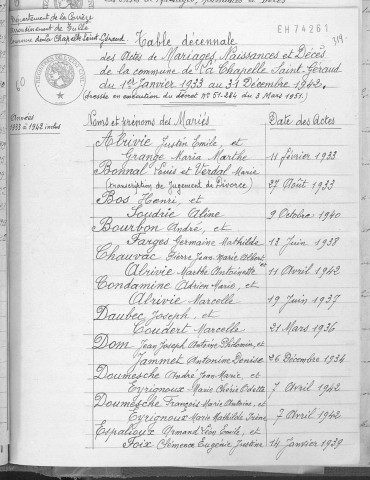 Département de la Corrèze
Arrondissement de Tulle
Commune de la Chapelle Saint-Géraud
EH74261
319
Table décennale
des Actes de Mariages, Naissances et Décès
de la commune de La Chapelle Saint-Géraud
du 1er Janvier 1933 au 31 Décembre 1942.
(dressée en exécution du décret N° 51.284 du 3 Mars 1951.)
Années
1933 à 1942 inclus
Noms et prénoms des Mariés
Date des Actes
Alrivie Justin Emile, et
Grange Maria Marthe 11 février 1933
Bonnal Louis et Verdal Marie
(transcription de Jugement de Divorce) 27 Août 1933
Bos Henri, et
Soudrie Aline 9 Octobre 1940
Bourbon André, et
Farges Germaine Mathilde 13 Juin 1938
Chauvac Pierre Jean-Marie Albert et
Alrivie Marthe Antoinette 11 Avril 1942
Condamine Adrien-Marie, et
Alrivie Marcelle 19 Juin 1937
Daubec Joseph, et
Coudert Marcelle 21 Mars 1936
Dom Jean Joseph Antoine Philemin, et
Jammet Antonine Denise 26 Décembre 1934
Doumesche André Jean-Marie, et
Eyrignoux Marie Chérie Odette 7 Avril 1942
Doumesche François Marie Antoine, et
Eyrignoux Marie Mathilde Irène 7 Avril 1942
Espalioux Armand Léon Emile, et
Foix Clémence Eugénie Justine 14 Janvier 1939